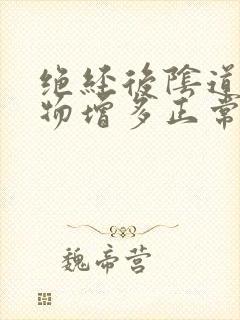 绝经后陰道
物增多正常
魏帝营